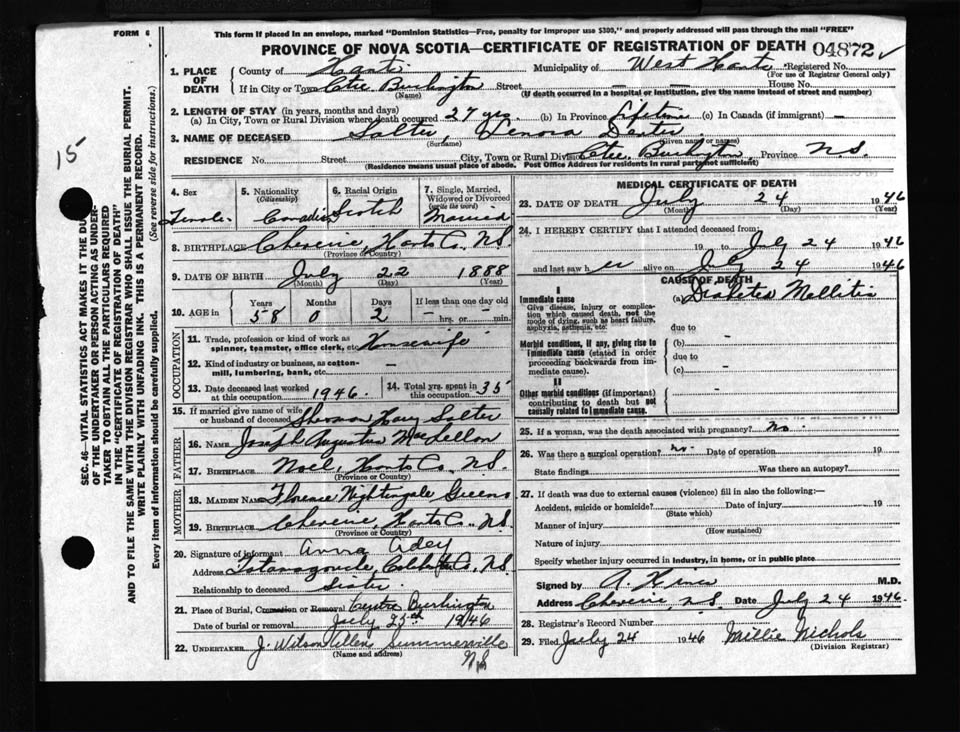 This form if placed in an envelope, marked "Dominion Statistics—Free, penalty for improper use $300," and properly addressed will pass through the mail "FREE"
FORM 6
PROVINCE OF NOVA SCOTIA—CERTIFICATE OF REGISTRATION OF DEATH 04872
15
SEC. 46—VITAL STATISTICS ACT MAKES IT THE DUTY
OF THE UNDERTAKER OR PERSON ACTING AS UNDER-
TAKER TO OBTAIN ALL THE PARTICULARS REQUIRED
IN THE "CERTIFICATE OF REGISTRATION OF DEATH"
AND TO FILE THE SAME WITH THE DIVISION REGISTRAR WHO SHALL ISSUE THE BURIAL PERMIT.
WRITE PLAINLY WITH UNFADING INK. THIS IS A PERMANENT RECORD.
Every item of Information should be carefully supplied. (See reverse side for instructions.)
1. PLACE OF DEATH
County of Hants Municipality of West Hants Registered No.
(For use of Registrar General only)
If in City or Town Ctre Burlington Street — House No. —
(Name) (If death occurred in a hospital or institution, give the name instead of street and number)
2. LENGTH OF STAY (in years, months and days)
(a) In City, Town or Rural Division where death occurred 27 yrs. (b) In Province Lifetime (c) In Canada (if immigrant) —
3. NAME OF DECEASED Salter, Lenora Dexter
(Surname, Given name or names)
RESIDENCE No. Street City, Town or Rural Division Ctre. Burlington, Province N.S.
(Residence means usual place of abode. Post Office Address for residents in rural parts not sufficient)
4. Sex
Female
5. Nationality
(Citizenship)
Canadian
6. Racial Origin
Scotch
7. Single, Married, Widowed or Divorced
(write the word)
Married
8. BIRTHPLACE Cheverie, Hants Co. N.S.
(Province or Country)
9. DATE OF BIRTH July 22 1888
(Month) (Day) (Year)
10. AGE in
Years Months Days If less than one day old
58 0 2 — hrs. or — min.
OCCUPATION
11. Trade, profession or kind of work as spinner, teamster, office clerk, etc. Housewife
12. Kind of industry or business, as cotton-mill, lumbering, bank, etc. —
13. Date deceased last worked at this occupation 1946.
14. Total yrs. spent in this occupation 35
15. If married give name of wife or husband of deceased Sherman Salter
FATHER
16. NAME Joseph Augustus MacLellan
17. BIRTHPLACE Noel, Hants Co., N.S.
(Province or Country)
MOTHER
18. MAIDEN NAME Florence Nightingale
19. BIRTHPLACE Cheverie, Hants Co., N.S.
(Province or Country)
20. Signature of informant Anna Adey
Address Tatamagouche, Colchester Co, N.S.
Relationship to deceased Sister
21. Place of Burial, Cremation or Removal Centre Burlington
Date of burial or removal July 25th 1946
22. UNDERTAKER J. Wilson Allen Summerville
(Name and address) N.S.
MEDICAL CERTIFICATE OF DEATH
23. DATE OF DEATH July 24 1946
(Month) (Day) (Year)
24. I HEREBY CERTIFY that I attended deceased from:
19 to July 24 1946
and last saw her alive on July 24 1946
CAUSE OF DEATH
I
Immediate cause
Give disease, injury or complication which caused death, not the mode of dying, such as heart failure, asphyxia, asthenia, etc.
(a) Diabetes Mellitis
due to
Morbid conditions, if any, giving rise to immediate cause (stated in order proceeding backwards from immediate cause).
(b) -
due to
(c) -
II
Other morbid conditions (if important) contributing to death but not causally related to immediate cause.
-
25. If a woman, was the death associated with pregnancy? no.
26. Was there a surgical operation? no. Date of operation 19
State findings Was there an autopsy?
27. If death was due to external causes (violence) fill in also the following:—
Accident, suicide or homicide? Date of injury 19
(State which)
Manner of injury
(How sustained)
Nature of injury
Specify whether injury occurred in industry, in home, or in public place
Signed by M.D.
Address Cheverie, N.S. Date July 24 1946.
28. Registrar's Record Number
29. Filed July 24 1946 Millie Nichols
(Division Registrar)